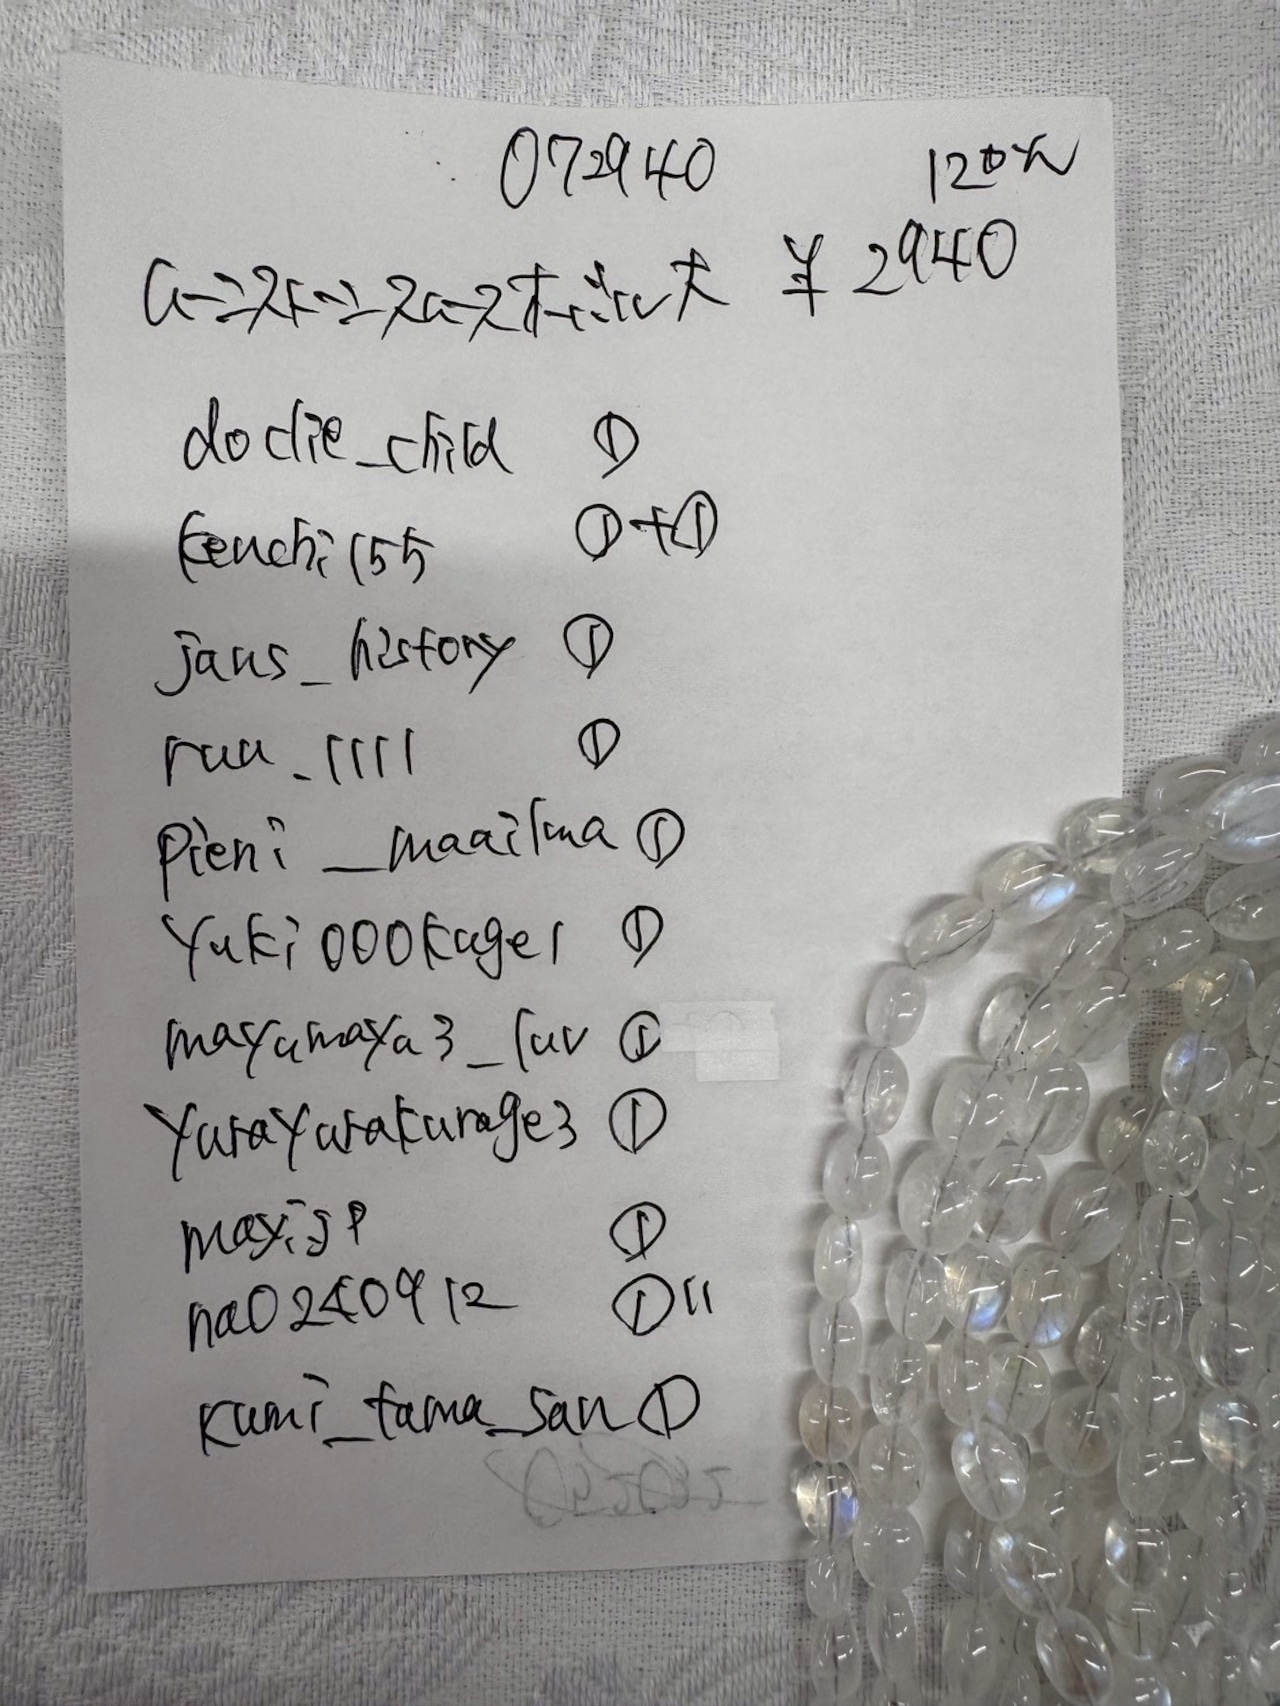 072940
120
¥ 2940
doclie_child ①
kenchi155 ①+①
jaus_history ①
ruu_1111 ①
pieni_maailma ①
Yuki000kage1 ①
mayumaya3_luv ①
YuraYurakurage3 ①
mayijp ①
na0240912 ① 11
kumi_tama_san ①